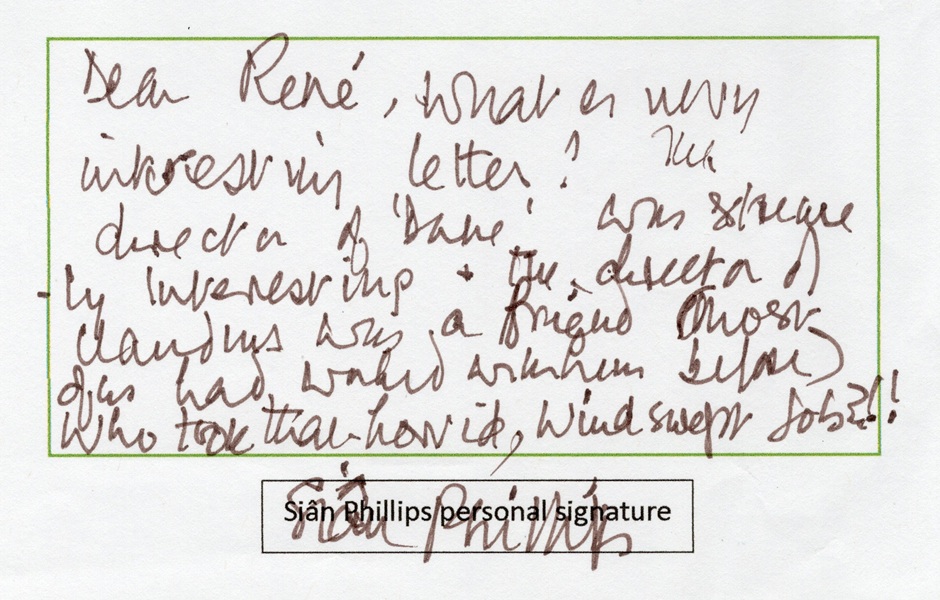 Dear René, What a very
interesting letter! The
director of 'Dune' was strange
-ly interesting + the director of
Claudius was a friend (most
of us had worked with him before)
Who took that horrid, windswept job?!!
Siân Phillips personal signature
Siân Phillips